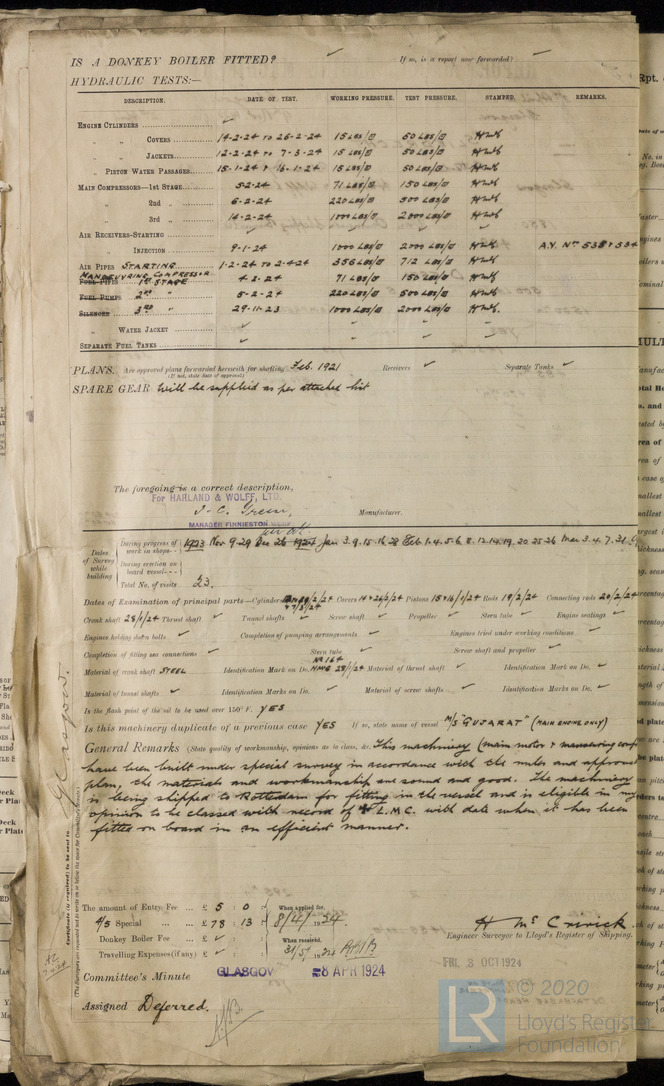 IS A DONKEY BOILER FITTED? ✓ If so, is a report now forwarded? ✓
HYDRAULIC TESTS:—
DESCRIPTION. DATE OF TEST. WORKING PRESSURE. TEST PRESSURE. STAMPED. REMARKS.
ENGINE CYLINDERS ✓
" " COVERS 14-2-24 TO 26-2-24 15 LBS/□ 50 LBS/□ HMK
" " JACKETS 12-2-24 TO 7-3-24 15 LBS/□ 50 LBS/□ HMK
" PISTON WATER PASSAGES 15-1-24 & 16-1-24 15 LBS/□ 50 LBS/□ HMK
MAIN COMPRESSORS—1st STAGE 5-2-24 71 LBS/□ 150 LBS/□ HMK
" 2nd " 6-2-24 220 LBS/□ 500 LBS/□ HMK
" 3rd " 16-2-24 1000 LBS/□ 2000 LBS/□ HMK
AIR RECEIVERS—STARTING ✓
" INJECTION 9-1-24 1000 LBS/□ 2000 LBS/□ HMK A.Y. Nos 533 & 534
AIR PIPES STARTING 1-2-24 TO 2-4-24 356 LBS/□ 712 LBS/□ HMK
MANOEUVRING COMPRESSOR
FUEL PIPES 1ST STAGE 4-2-24 71 LBS/□ 150 LBS/□ HMK
FUEL PUMPS 2ND " 5-2-24 220 LBS/□ 500 LBS/□ HMK
SILENCER 3RD " 29-11-23 1000 LBS/□ 2000 LBS/□ HMK
" WATER JACKET ✓
SEPARATE FUEL TANKS ✓
PLANS. Are approved plans forwarded herewith for shafting Feb. 1921 Receivers ✓ Separate Tanks ✓
(If not, state date of approval)
SPARE GEAR will be supplied as per attached list
The foregoing is a correct description,
For HARLAND & WOLFF, LTD.
Manufacturer.
MANAGER FINNIESTON
Dates of Survey while building
During progress of work in shops-- 1923 Nov. 9-29 Dec 26 1924 Jan. 3.9.15.16.28 Feb. 1.4.5.6.8.12.14.19.20.25.26 Mar 3.4.7.31
During erection on board vessel---
Total No. of visits 23.
Dates of Examination of principal parts—Cylinders Covers 14 & 26/2/24 Pistons 15 & 16/1/24 Rods 19/2/24 Connecting rods 20/2/24
Crank shaft 28/1/24 Thrust shaft ✓ Tunnel shafts ✓ Screw shaft ✓ Propeller ✓ Stern tube ✓ Engine seatings ✓
Engines holding down bolts ✓ Completion of pumping arrangements ✓ Engines tried under working conditions ✓
Completion of fitting sea connections ✓ Stern tube ✓ Screw shaft and propeller ✓
Material of crank shaft STEEL Identification Mark on Do. No 164 HMG 28/1/24 Material of thrust shaft ✓ Identification Mark on Do. ✓
Material of tunnel shafts ✓ Identification Marks on Do. ✓ Material of screw shafts ✓ Identification Marks on Do. ✓
Is the flash point of the oil to be used over 150° F. YES
Is this machinery duplicate of a previous case YES If so, state name of vessel M/S "GUJARAT" (MAIN ENGINE ONLY)
General Remarks (State quality of workmanship, opinions as to class, &c. This machinery (main motor & manoeuvring comp
have been built under special survey in accordance with the rules and approved
plan, the materials and workmanship are sound and good. The machinery
is being shipped to Rotterdam for fitting in the vessel and is eligible in my
opinion to be classed with record of L.M.C. with date when it has been
fitted on board in an efficient manner.
Glasgow.
Certificate (if required) to be sent to
(The Surveyors are requested not to write on or below the space for Committee's Minute.)
The amount of Entry Fee ... £ 5 : 0 : When applied for,
4/5 Special ... £ 78 : 13 : 8/4/1924.
Donkey Boiler Fee ... £ ✓ : When received,
Travelling Expenses (if any) £ ✓ : 31/5/1924
Engineer Surveyor to Lloyd's Register of Shipping.
FRI. 3 OCT 1924
Committee's Minute GLASGOW 8 APR 1924
Assigned Deferred.
© 2020
Lloyd's Register
Foundation
LR